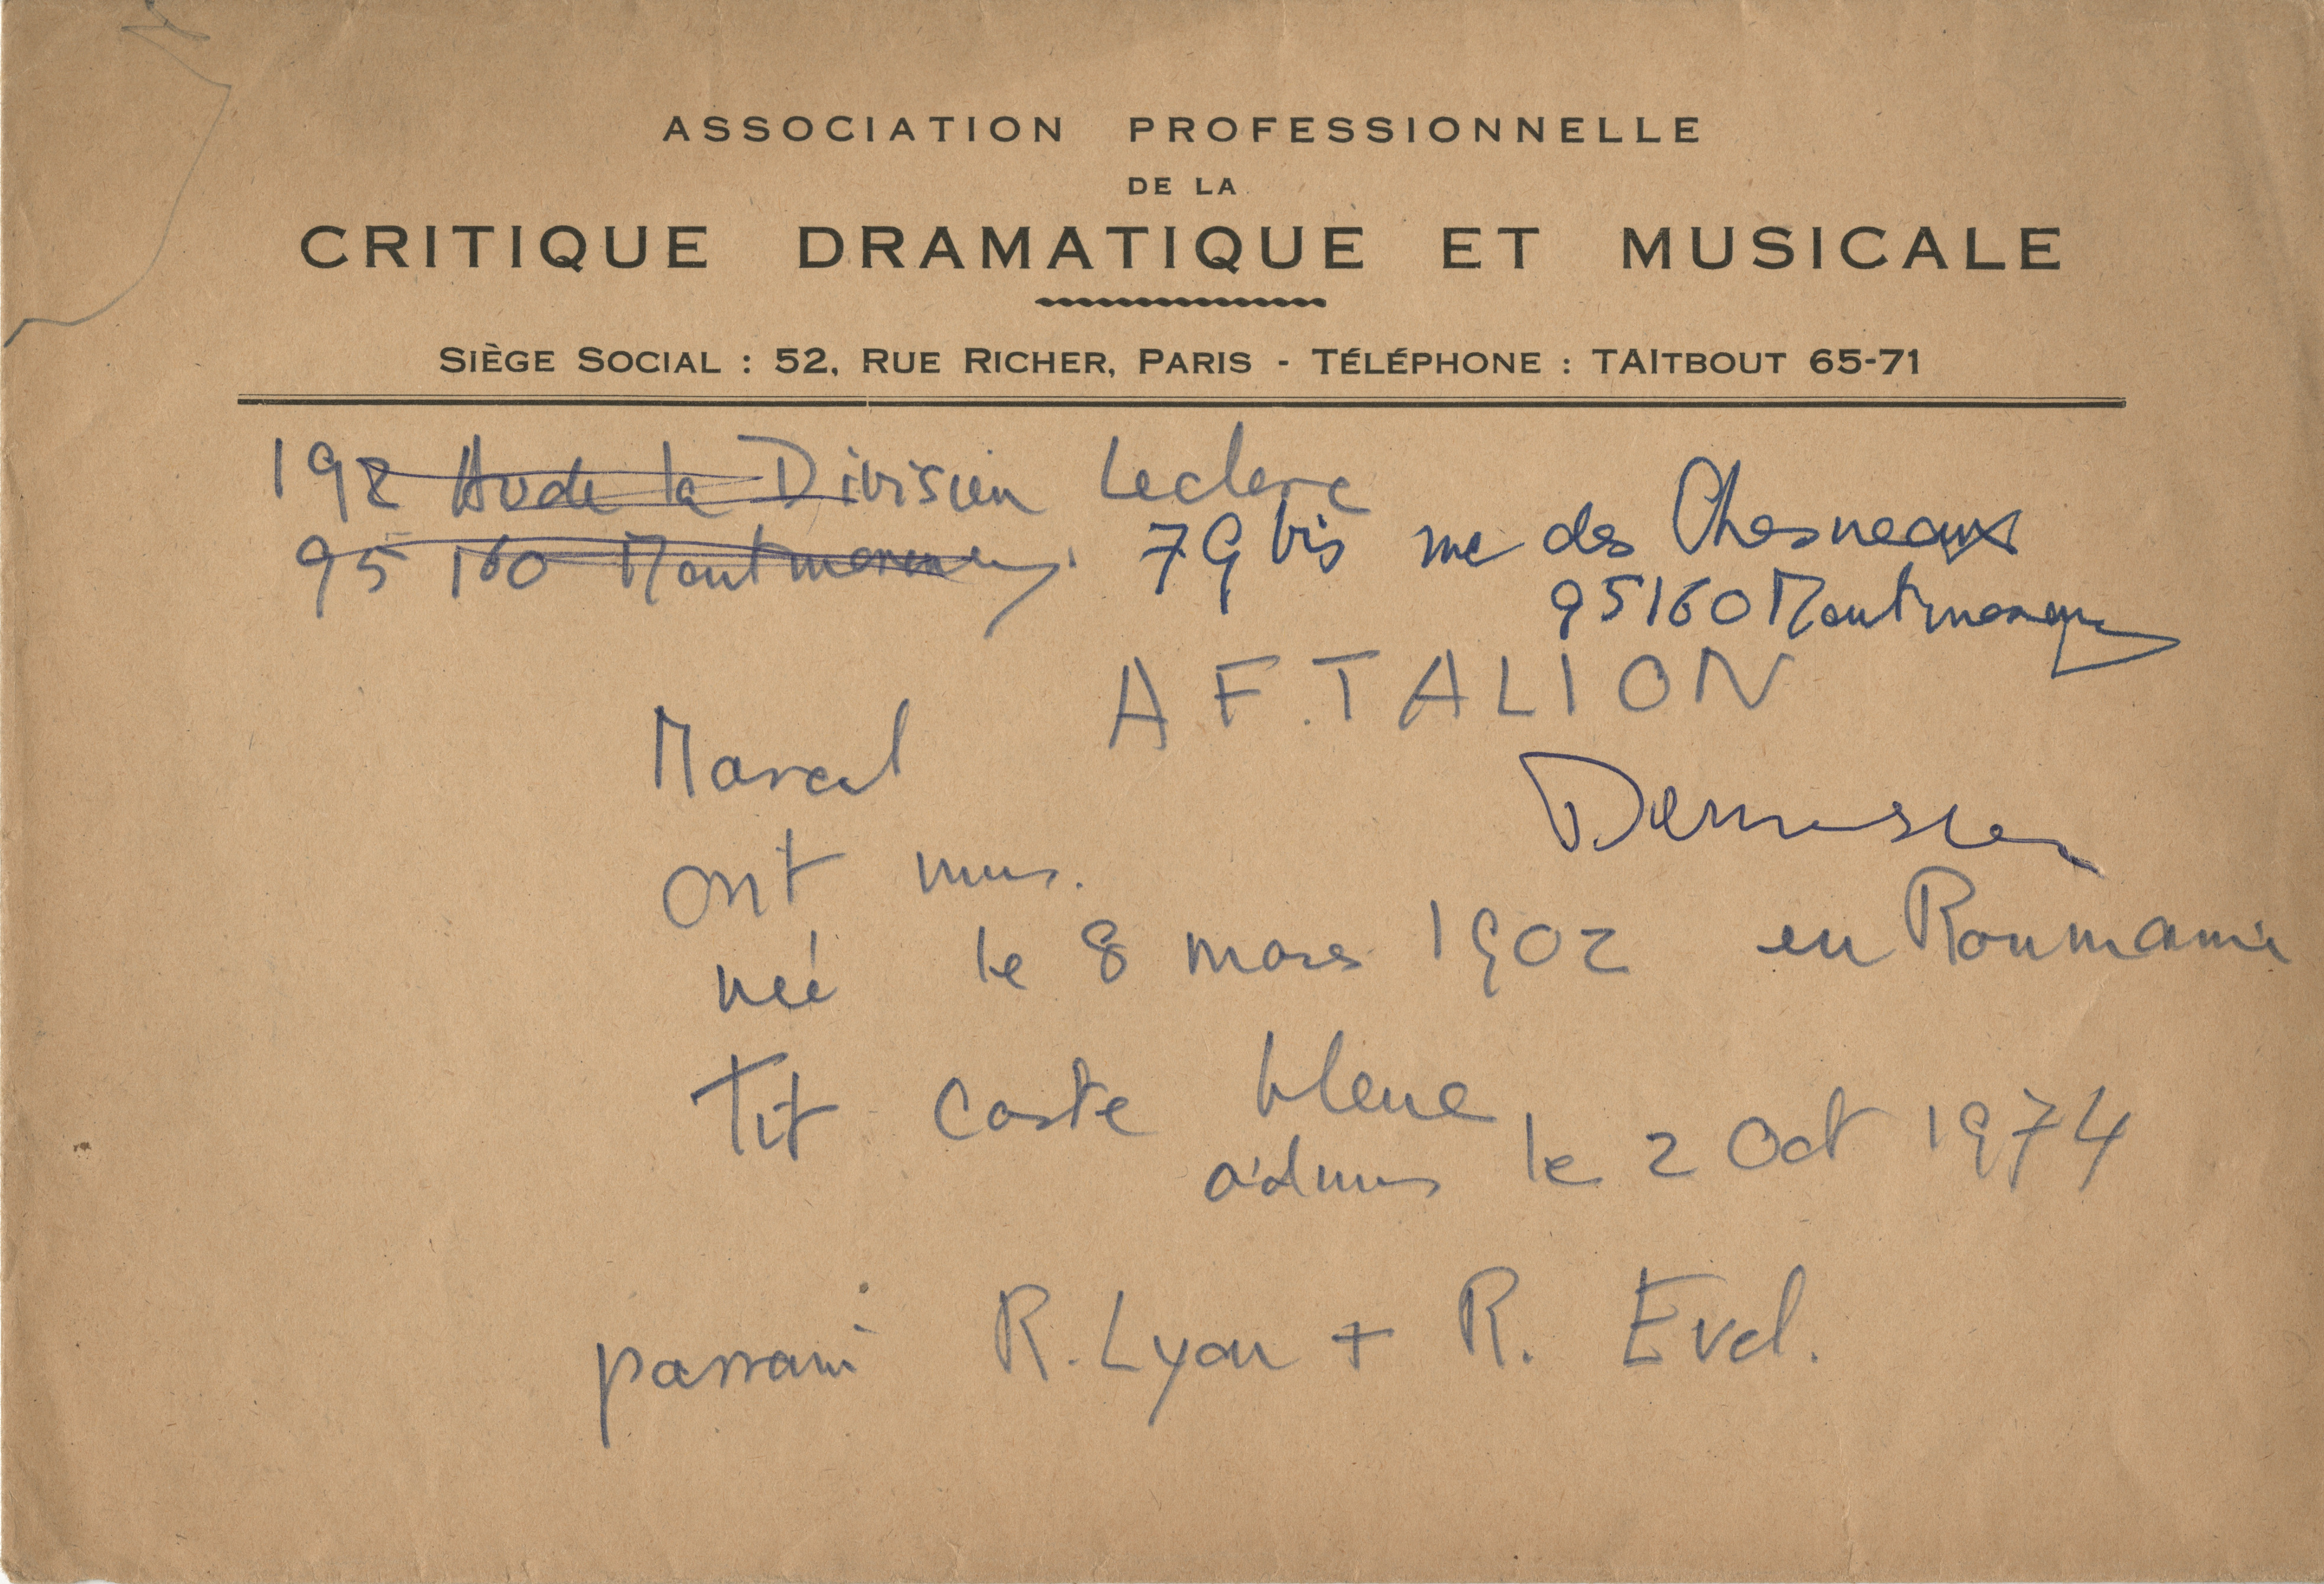 ASSOCIATION PROFESSIONNELLE
DE LA
CRITIQUE DRAMATIQUE ET MUSICALE
SIÈGE SOCIAL : 52, RUE RICHER, PARIS - TÉLÉPHONE : TAITBOUT 65-71
192 Av de la Division Leclerc
95160 Montmorency. 79 bis rue des Chesneaux
95160 Montmorency
AFTALION
Marcel
mus.
né le 8 mars 1902 en Roumanie
Tit carte bleue
admis le 2 Oct 1974
R. Lyon + R. Evel.